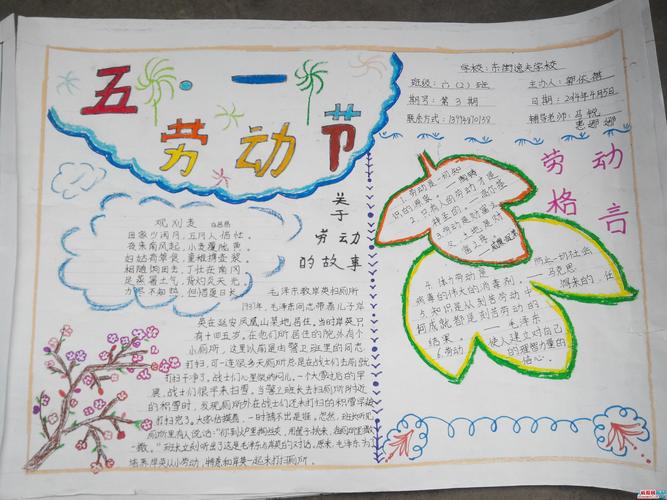 五·一
劳动节
学校:东街逸夫学校
班级:六(2)班
主办人:郭依
期号:第3期
日期:2014年4月5日
联系方式:13994870138
辅导老师:马悦
观刈麦
白居易
田家少闲月,五月人倍忙。
夜来南风起,小麦覆陇黄。
妇姑荷箪食,童稚携壶浆,
相随饷田去,丁壮在南冈
足蒸暑土气,背灼炎天光。
力尽不知热,但惜夏日长
关于
劳动
的故事
毛泽东教岸英扫厕所
毛泽东同志带着儿子岸
英在延安凤凰山某地居住。当时岸英只
有十四五岁。在他们所居住的院外有个
小厕所,这里以前是由警卫班里的同志
打扫,可一连好多天厕所总是在战士们去前就
打扫干净了。战士们心里很纳闷儿,一个大雪纷飞的早
晨,战士们很早来扫雪。当警卫班长去扫厕所附近
的积雪时,发现厕所外在战士们还未打扫的积雪早被
打扫完了。大家估摸着,一时猜不出是谁。忽然,班长听见
厕所里有人说话:
班长立刻听出了这是毛泽东与岸英的对话。原来,毛泽东为了
培养岸英从小劳动,特意和岸英一起来打扫厕所。
劳动
格言
1.劳动是一切知
识的源泉。——陶铸
2.只有人的劳动才是
神圣的。——高尔基
3.劳动是财富之
父,土地是财
富之母。
4.体力劳动是防止一切社会
病毒的伟大的消毒剂。——马克思
5.知识是从刻苦劳动中得来的,任
何成就都是刻苦劳动的
结果。——毛泽东
6.劳动使人建立对自己
的理智力量的
信心。